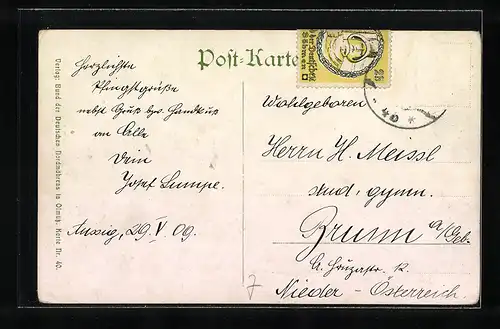 Post-Karte
Herzlichste
Pfingstgrüße
nebst Gruß bzw. Handkuß
an Alle
Dein
Josef Lumpe.
Aussig, 29. V. 09.
Wohlgeboren
Herrn H. Meissl
stud. gymn.
Brunn a/Geb.
Nieder-Österreich.
7
Verlag: Bund der Deutschen Nordmährens in Olmütz. Karte Nr. 40.